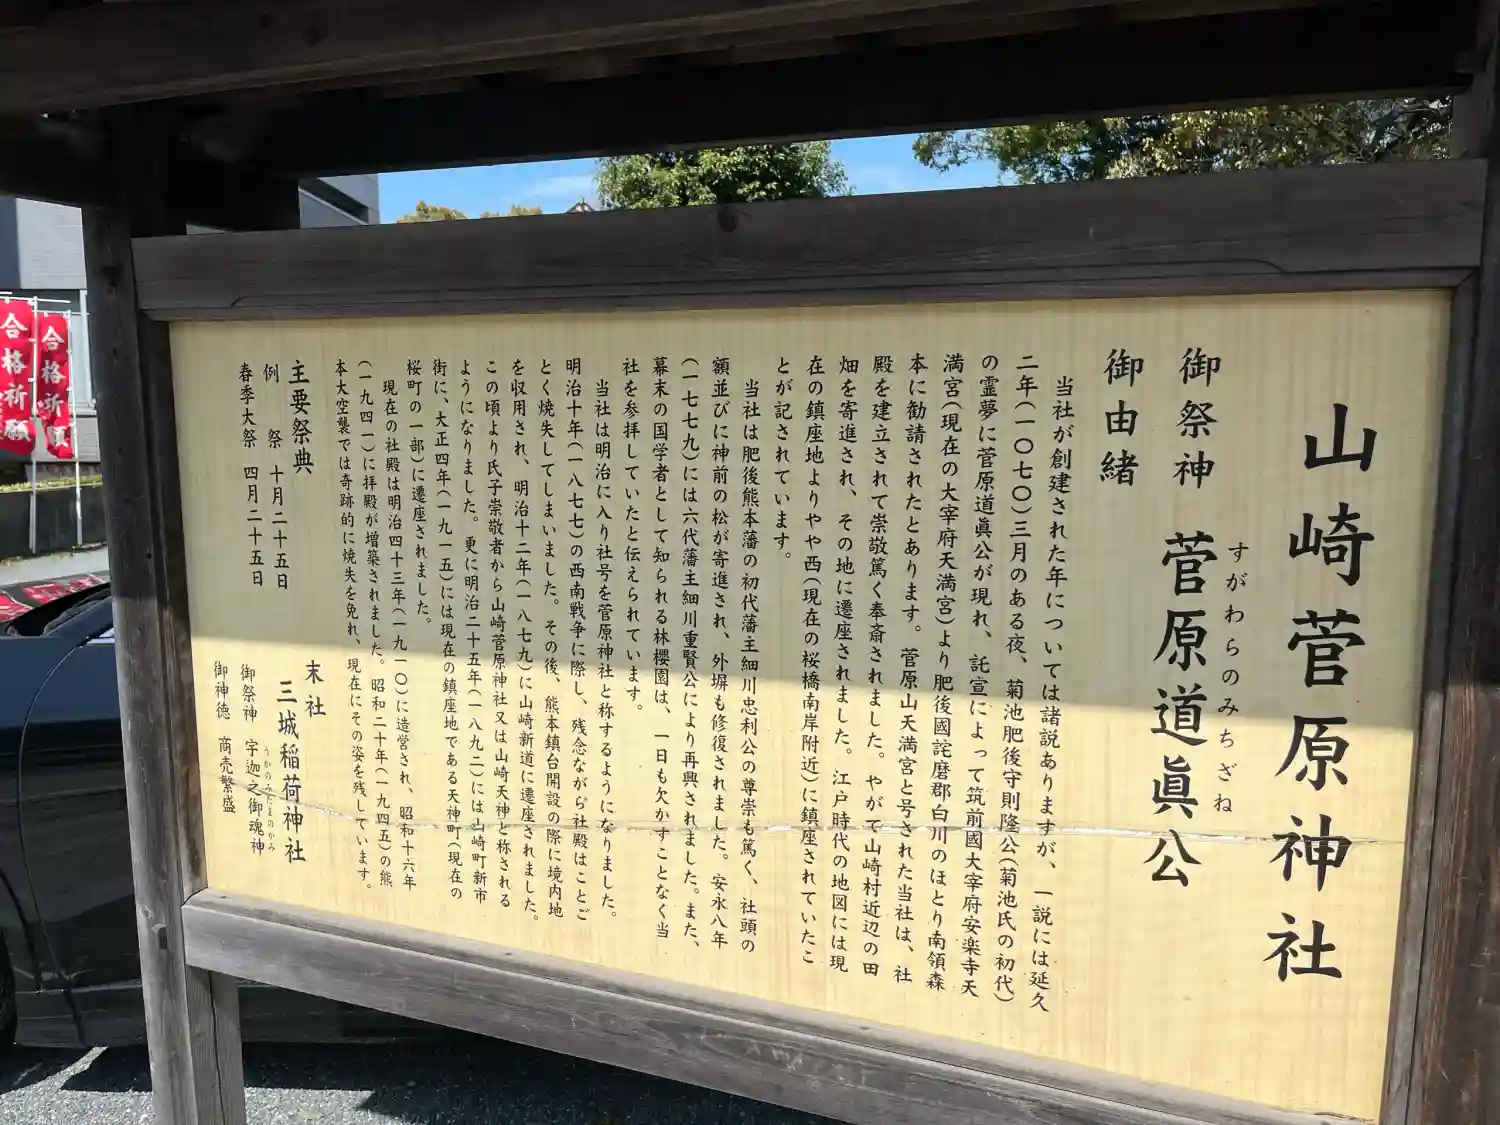 山崎菅原神社
御祭神 菅原道眞公
すがわらのみちざね
御由緒
当社が創建された年については諸説ありますが、一説には延久
二年(一〇七〇)三月のある夜、菊池肥後守則隆公(菊池氏の初代)
の霊夢に菅原道眞公が現れ、託宣によって筑前國大宰府安楽寺天
満宮(現在の大宰府天満宮)より肥後國詫磨郡白川のほとり南領森
本に勧請されたとあります。菅原山天満宮と号された当社は、社
殿を建立されて崇敬篤く奉斎されました。やがて山崎村近辺の田
畑を寄進され、その地に遷座されました。江戸時代の地図には現
在の鎮座地よりやや西(現在の桜橋南岸附近)に鎮座されていたこ
とが記されています。
当社は肥後熊本藩の初代藩主細川忠利公の尊崇も篤く、社頭の
額並びに神前の松が寄進され、外塀も修復されました。安永八年
(一七七九)には六代藩主細川重賢公により再興されました。また、
幕末の国学者として知られる林櫻園は、一日も欠かすことなく当
社を参拝していたと伝えられています。
当社は明治に入り社号を菅原神社と称するようになりました。
明治十年(一八七七)の西南戦争に際し、残念ながら社殿はことご
とく焼失してしまいました。その後、熊本鎮台開設の際に境内地
を収用され、明治十二年(一八七九)に山崎新道に遷座されました。
この頃より氏子崇敬者から山崎菅原神社又は山崎天神と称される
ようになりました。更に明治二十五年(一八九二)には山崎町新市
街に、大正四年(一九一五)には現在の鎮座地である天神町(現在の
桜町の一部)に遷座されました。
現在の社殿は明治四十三年(一九一〇)に造営され、昭和十六年
(一九四一)に拝殿が増築されました。昭和二十年(一九四五)の熊
本大空襲では奇跡的に焼失を免れ、現在にその姿を残しています。
主要祭典
例祭 十月二十五日
春季大祭 四月二十五日
末社
三城稲荷神社
御祭神 宇迦之御魂神
うかのみたまのかみ
御神徳 商売繁盛
合格祈願
合格祈願